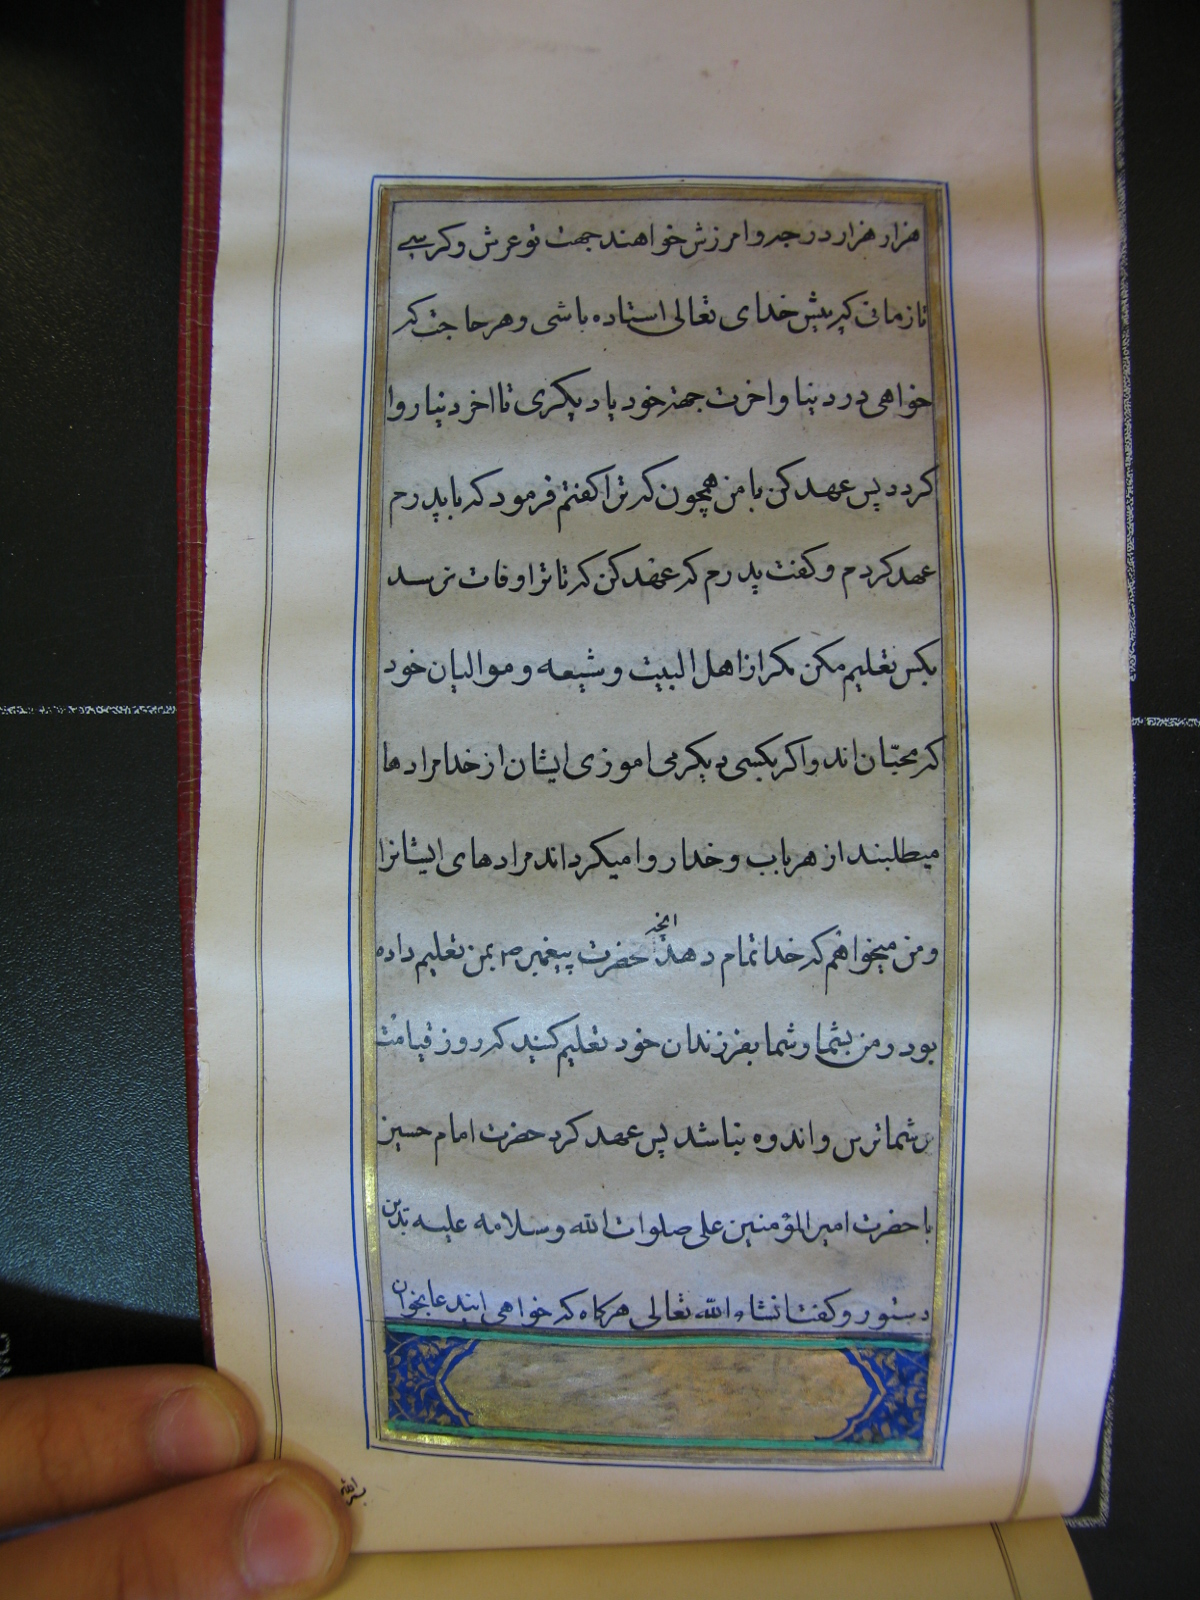 هزار هزار درجه و امرزش خواهند جهت تو عرش و کرسی
تا زمانی که پیش خدای تعالی استاده باشی و هر حاجت که
خواهی در دنیا و اخرت جهة خود یا دیکری تا اخر دنیا روا
کردد پس عهد کن با من همچون که ترا کفتم فرمود که با پدرم
عهد کردم و کفت پدرم که عهد کن که تا ترا وفات نرسد
بکس تعلیم مکن مکر از اهل البیت و شیعه و موالیان خود
که محبّان اند و اکر بکسی دیکر می اموزی ایشان از خدا مرادها
میطلبند از هر باب و خدا روا میکرداند مرادهای ایشانرا
و من میخواهم که خدا تمام دهد انچه حضرت پیغمبر ص بمن تعلیم داده
بود و من بشما و شما بفرزندان خود تعلیم کنید که روز قیامت
بر شما ترس و اندوه نباشد پس عهد کرد حضرت امام حسین
با حضرت امیر المؤمنین علی صلوات الله و سلامه علیه بدین
دستور و کفت انشاء الله تعالی هرکاه که خواهی این دعا بخوان
بسم الله